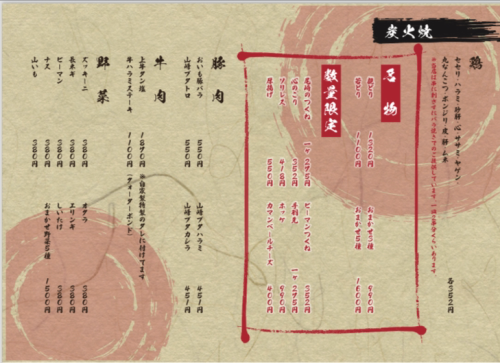 炭火焼
鶏
セセリ・ハラミ・砂肝・心・ササミ・ヤゲン
丸なんこつ・ボンジリ・皮・肝・ムネ
各352円
名物
親どり 1320円 おまかせ3種 990円
若どり 1100円 おまかせ5種 1600円
数量限定
尾崎のつくね 一ヶ275円 ピーマンつくね 352円
心のこり 352円 手羽先 一ヶ352円
ソリレス 418円 ホッケ 990円
厚揚げ 550円 カマンベールチーズ 400円
豚肉
おいも豚バラ 550円 山崎ブタハラミ 451円
山崎ブタトロ 550円 山崎ブタカシラ 451円
牛肉
上牛タン塩 1870円 ※自家製特製のタレに付けてます
牛ハラミステーキ 1100円 (クォーターポンド)
野菜
ズッキーニ 380円 オクラ 380円
長ネギ 380円 エリンギ 380円
ピーマン 380円 しいたけ 380円
ナス 380円 おまかせ野菜5種 1500円
山いも 380円